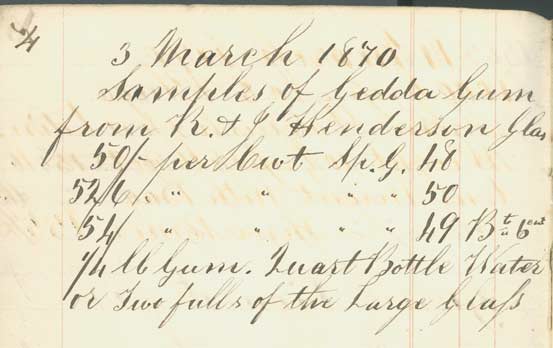 4
3 March 1870
Samples of Gedda Gum
from R. & J. Henderson Glas
50/- per Cwt Sp. G. 48
52/6 " " " " 50
54/ " " " " 49 Bt 6 cwt
1/4 lb Gum. Quart Bottle Water
or Two fulls of the Large Glass